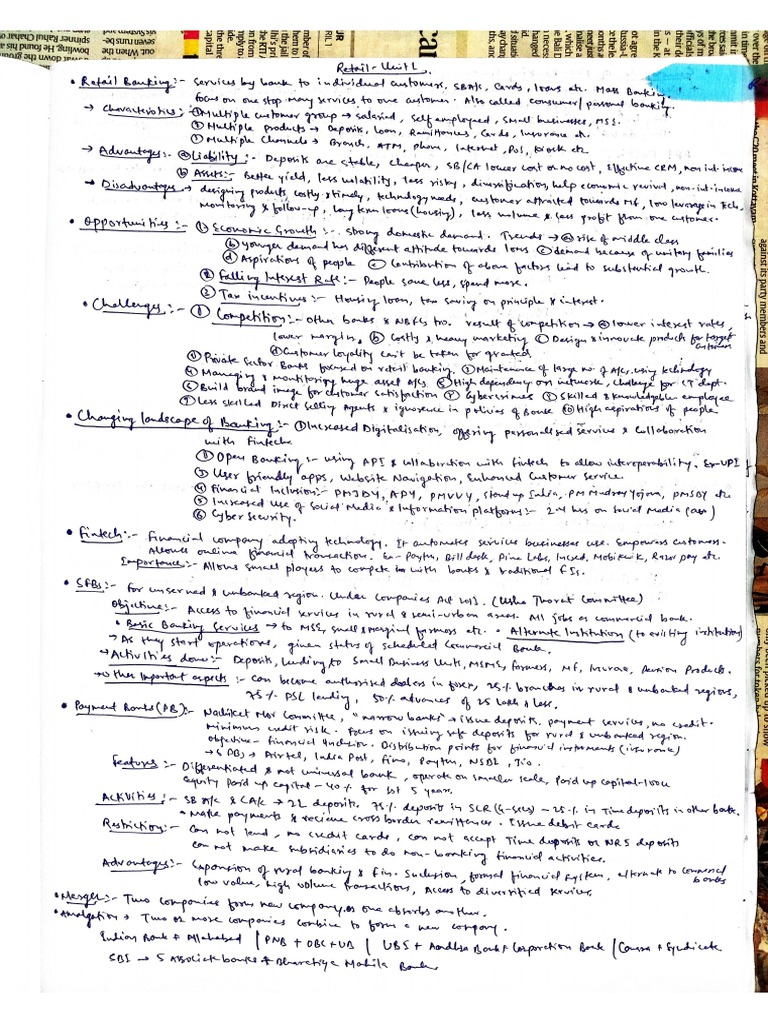 Retail - Unit 1.
• Retail Banking :- Services by bank to individual customers, SBA/c, Cards, loans etc. Mass Banking.
focus on one stop many services to one customer. Also called consumer/personal banking.
→ Characteristics :- ① Multiple customer group → salaried, self employed, small businesses, MSS.
② Multiple products → Deposit, loan, Remittances, Cards, Insurance etc.
③ Multiple Channels → Branch, ATM, phone, Internet, PoS, kiosk etc
→ Advantages :- ⓐ Liability :- Deposits are stable, cheaper, SB/CA lower cost or no cost, Effective CRM, non int. income
ⓑ Assets :- Better yield, less volatility, less risky, diversification, help economic revival, non-int-income
→ Disadvantages → designing products, costly & timely, technology needs, customer attracted towards MF, low leverage in tech,
monitoring & follow-up, long term loans (housing), less volume & less profit from one customer.
• Opportunities :- ① Economic Growth :- strong domestic demand. Trends → ⓐ rise of middle class
ⓑ younger demand has different attitude towards loans ⓒ demand because of unitary families
ⓓ Aspirations of people ⓔ Contribution of above factors lead to substantial growth.
② Falling Interest Rate :- People save less, spend more.
③ Tax incentives :- Housing loan, tax saving on principle & interest.
• Challenges :- ① Competition :- Other banks & NBFCs too. result of competition → ⓐ lower interest rates,
lower margins, ⓑ Costly & heavy marketing ⓒ Design & innovate products for target customers
ⓓ Customer loyality can't be taken for granted
Private Sector Banks focused on retail banking. Maintenance of large no. of A/cs, using technology
④ Managing & monitoring huge asset A/cs. High dependency on network, challenge for IT dept.
⑥ Build brand image for customer satisfaction ⑦ Cybercrimes ⑧ Skilled & knowledgable employee
⑨ Less skilled Direct Selling Agents & ignorence in policies of Bank ⑩ High aspirations of people
• Changing landscape of Banking :- ① Increased Digitalisation, offering personalised services & Collaboration
with fintechs
② Open Banking :- using API & collaboration with fintech to allow interoperability. Ex-UPI
③ User friendly apps, Website Navigation, Enhanced Customer Service.
④ Financial Inclusion :- PMJDY, APY, PMVVY, Stand up India, PM Mudra Yojana, PMSBY etc
⑤ Increased use of Social Media & Information platforms :- 2-4 hrs on Social Media
⑥ Cyber Security.
• Fintech :- Financial company adopting technology. It automates services businesses use. Empowers customers.
Allows online financial transaction. Ex - Paytm, Bill desk, Pine Labs, Incred, Mobikwik, Razor pay etc.
Importance :- Allows small players to compete with banks & traditional FIs.
• SFBs :- for unserved & unbanked region. Under Companies Act 2013. (Usha Thorat Committee)
Objective :- Access to financial services in rural & semi-urban areas. All jobs as commercial bank.
• Basic Banking Services → to MSE, small & marginal farmers etc. • Alternate Institution (to existing institution)
→ As they start operations, given status of scheduled Commercial Bank.
→ Activities done :- Deposit, lending to Small Business Units, MSMS, farmers, MF, Pension Products.
→ Other Important aspects :- can become authorised dealers in forex, 25% branches in rural & unbanked regions,
75% PSL lending, 50% advances of 25 lakh & less.
• Payment Banks (PB) :- Nachiket Mor Committee, "narrow banks" → issue deposits, payment services, no credit.
minimum credit risk. Focus on issuing safe deposits for rural & unbanked region.
Objective - financial inclusion. Distribution points for financial instruments (insurance)
→ 6 PBs → Airtel, India Post, Fino, Paytm, NSDL, Jio.
Features :- Differentiated & not universal bank, operate on smaller scale, Paid up capital - 100cr
equity paid up capital - 40% for 1st 5 years.
Activities :- SB A/c & CA/c → 2L deposits. 75% deposit in SLR (G-secs) - 25% in Time deposits in other bank.
• Make payments & recieve cross border remittances. Issue debit cards
Restriction :- can not lend, no credit cards, can not accept Time deposits or NRI deposits
can not make subsidiaries to do non-banking financial activities.
Advantages :- Expansion of rural banking & fin. inclusion, formal financial system, alternate to commercial banks
low value, high volume transactions, Access to diversified services.
• Merger :- Two companies form new company or one absorbs another.
• Amalgation → Two or more companies combine to form a new company.
Indian Bank + Allahabad | PNB + OBC + UB | UBI + Aandhra Bank + Corporation Bank | Canara + Syndicate
SBI → 5 Associate banks + Bharatiya Mahila Bank